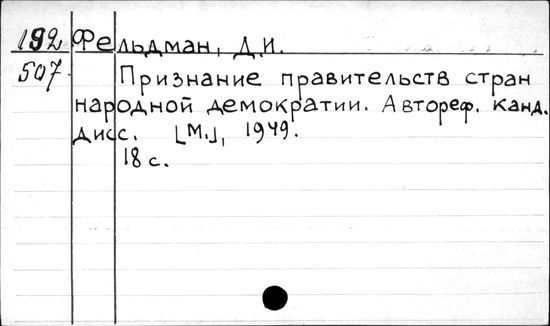 192 Фельдман, Д.И.
507 Признание правительств стран
народной демократии. Автореф. канд.
дисс. [М.], 1949.
18 с.